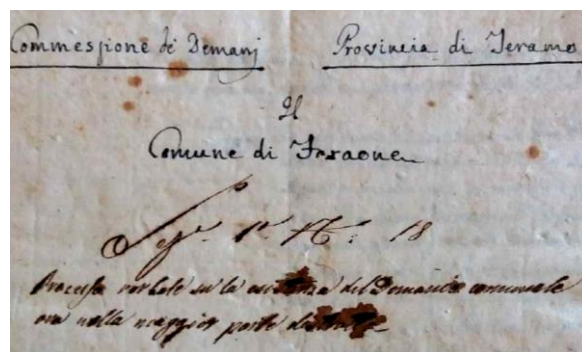 Commessione de' Demanj
Provincia di Teramo
Il
Comune di Faraone
1° 18
Processo verbale su la esistenza del Demanio comunale
ora nella maggior parte